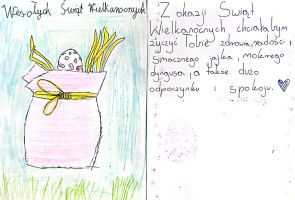 Wesołych Świąt Wielkanocnych
Z okazji Świąt
Wielkanocnych chciałabym
życzyć Tobie zdrowia, radości,
smacznego jajka, mokrego
dyngusa, a także dużo
odpoczynku i spokoju.